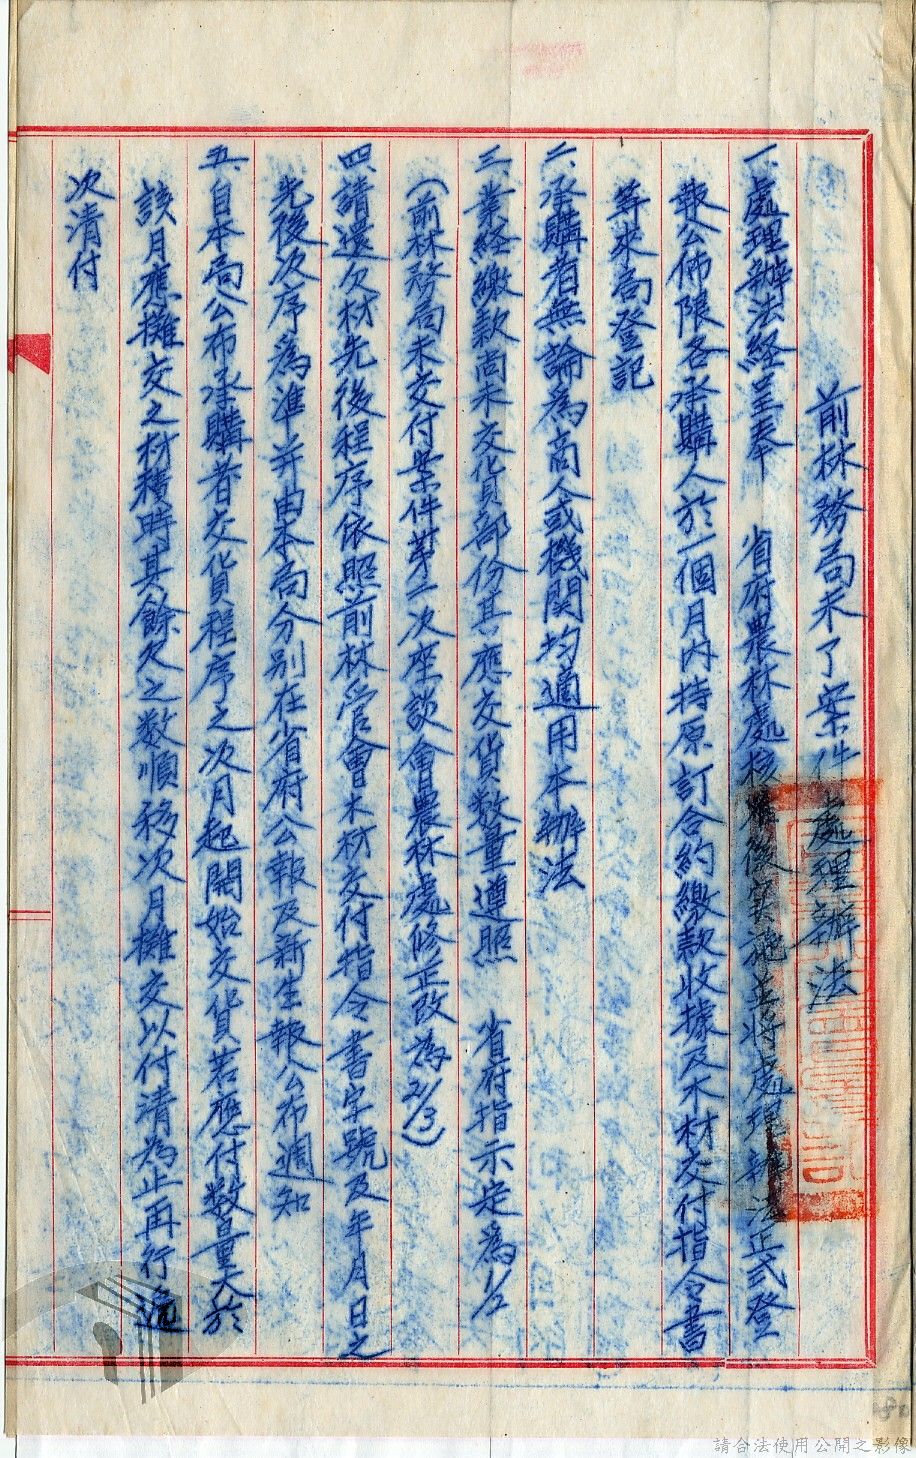 前林務局未了案件處理辦法
一、處理辦法経呈奉　省府農林處核准後實施並將處理辦法正式登
報公佈限各承購人於一個月內持原訂合約繳款收據及木材交付指令書
等來局登記
二、承購者無論為商人或機関均適用本辦法
三、業経繳款尚未交貨部份其應交貨數量遵照　省府指示定為1/2
（前林務局未交付案件第二次座談會農林處修正改為2/3）
四、請還欠材先後程序依照前林管會木材交付指令書字號及年月日之
先後次序為準并由本局分别在省府公報及新生報公布週知
五、自本局公布承購者交貨程序之次月起開始交貨若應付數量大於
該月應攤交之材積時其餘欠之數順移次月攤交以付清為止再行遞
次清付
請合法使用公開之影像